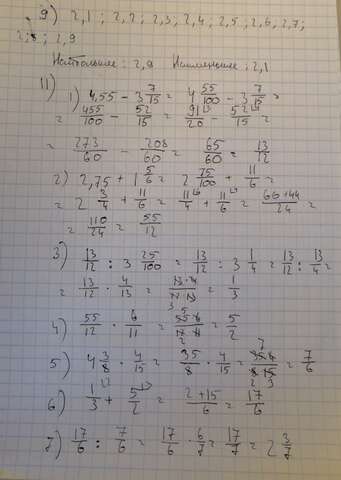 9) 2,1 ; 2,2 ; 2,3 ; 2,4 ; 2,5 ; 2,6, 2,7 ;
2,8 ; 2,9
Наибольшее : 2,9 Наименьшее : 2,1
11) 1) 4,55 - 3 7/15 = 4 55/100 - 3 7/15 =
= 455/100 - 52/15 = 91/20 - 52/15 =
= 273/60 - 208/60 = 65/60 = 13/12
2) 2,75 + 1 5/6 = 2 75/100 + 11/6 =
= 2 3/4 + 11/6 = 11/4 + 11/6 = 66+44/24 =
= 110/24 = 55/12
3) 13/12 : 3 25/100 = 13/12 : 3 1/4 = 13/12 : 13/4 =
= 13/12 · 4/13 = 13·4/12·13 = 1/3
4) 55/12 · 6/11 = 55·6/12·11 = 5/2
5) 4 3/8 · 4/15 = 35/8 · 4/15 = 35·4/8·15 = 7/6
6) 1/3 + 5/2 = 2+15/6 = 17/6
7) 17/6 : 7/6 = 17/6 · 6/7 = 17/7 = 2 3/7